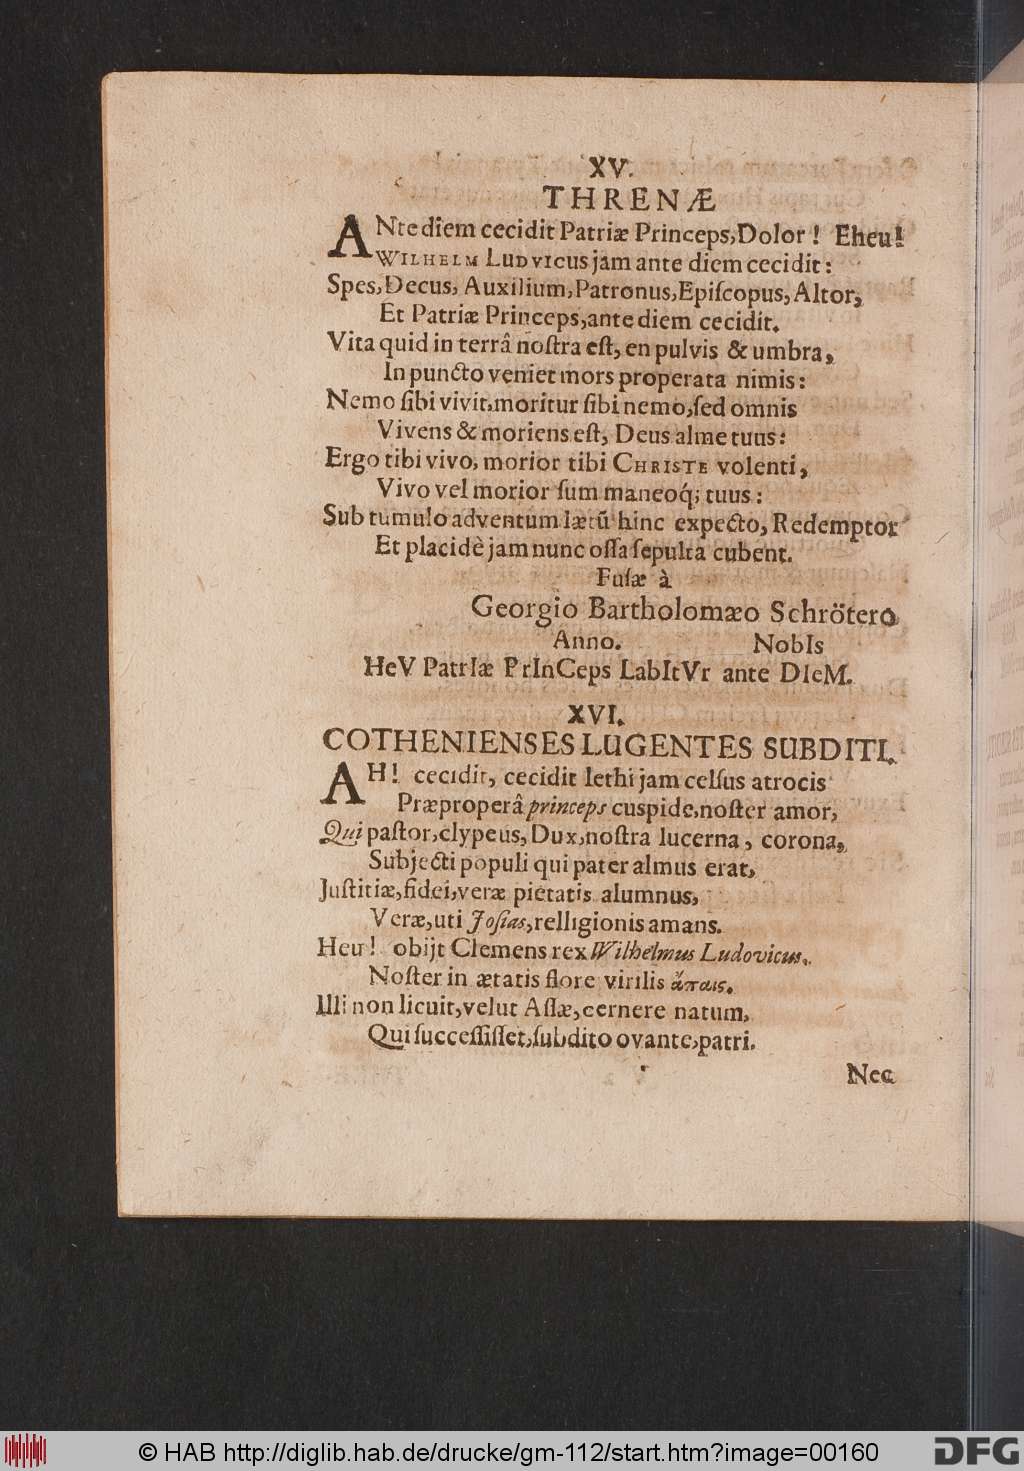 XV.
THRENÆ
ANte diem cecidit Patriæ Princeps, Dolor! Eheu!
WILHELM LUDVICus jam ante diem cecidit:
Spes, Decus, Auxilium, Patronus, Epiſcopus, Altor,
Et Patriæ Princeps, ante diem cecidit.
Vita quid in terrâ noſtra eſt, en pulvis & umbra,
In puncto veniet mors properata nimis:
Nemo ſibi vivit, moritur ſibi nemo, ſed omnis
Vivens & moriens eſt, Deus alme tuus:
Ergo tibi vivo, morior tibi CHRISTE volenti,
Vivo vel morior ſum maneoq́; tuus:
Sub tumulo adventum lætũ hinc expecto, Redemptor
Et placidè jam nunc oſſa ſepulta cubent.
Fuſæ à
Georgio Bartholomæo Schrötero
Anno. NobIs
HeV PatrIæ PrInCeps LabItVr ante DIeM.
XVI.
COTHENIENSES LUGENTES SUBDITI.
AH! cecidit, cecidit lethi jam celſus atrocis
Præproperâ princeps cuspide, noſter amor,
Qui paſtor, clypeus, Dux, noſtra lucerna, corona,
Subjecti populi qui pater almus erat,
Juſtitiæ, fidei, veræ pietatis alumnus,
Veræ, uti Joſias, relligionis amans.
Heu! obijt Clemens rex Wilhelmus Ludovicus,
Noſter in ætatis flore virilis ἄπαις.
Illi non licuit, velut Aſſæ, cernere natum,
Qui ſucceſſiſſet, ſubdito ovante, patri.
Nec
© HAB http://diglib.hab.de/drucke/gm-112/start.htm?image=00160
DFG